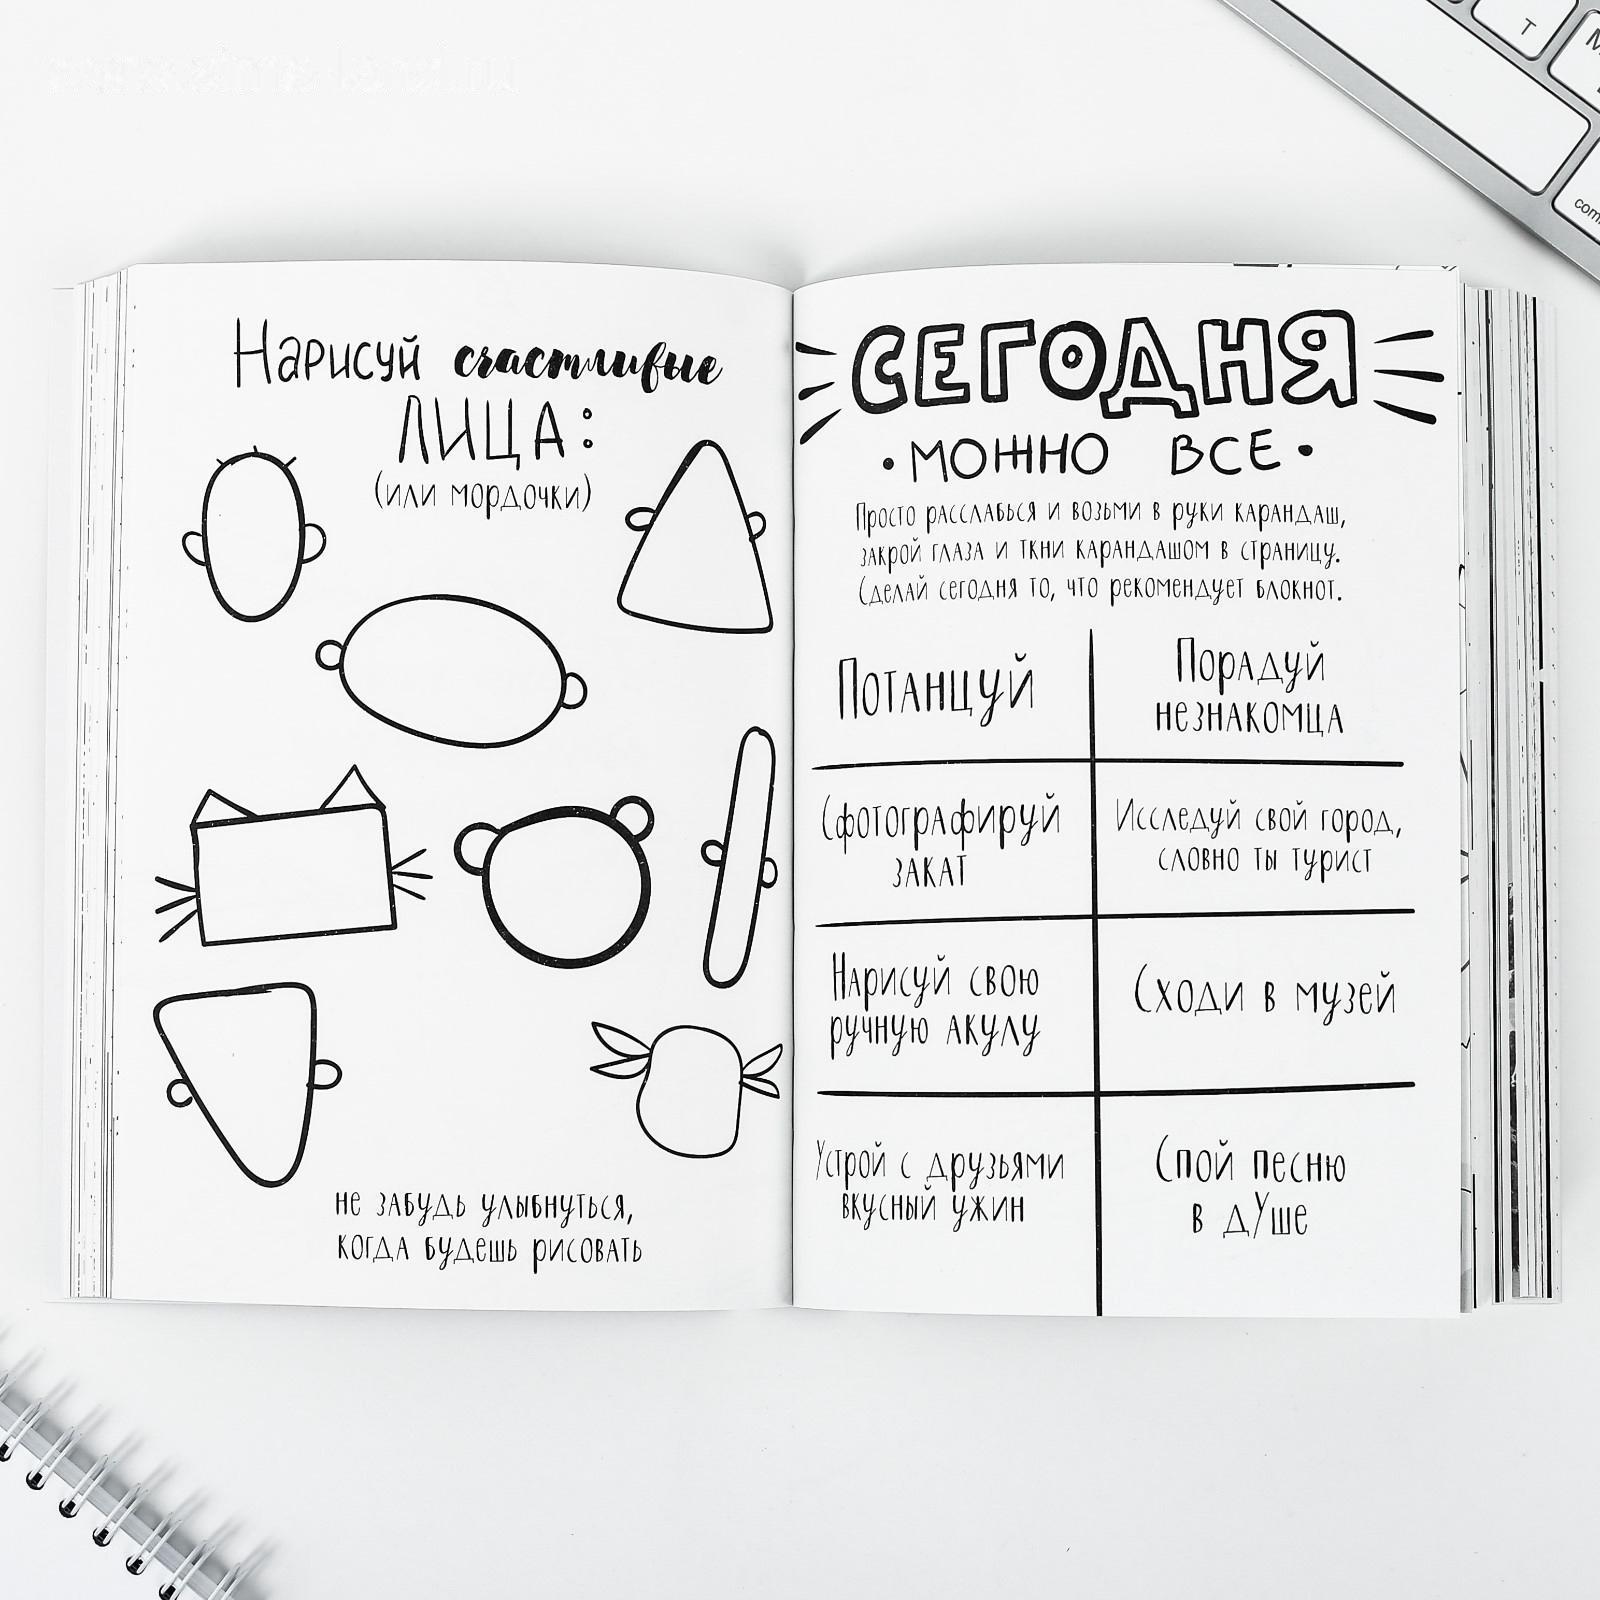 Нарисуй счастливые
ЛИЦА:
(или мордочки)
не забудь улыбнуться,
когда будешь рисовать
СЕГОДНЯ
• МОЖНО ВСЕ •
Просто расслабься и возьми в руки карандаш,
закрой глаза и ткни карандашом в страницу.
Сделай сегодня то, что рекомендует блокнот.
Потанцуй
Порадуй
незнакомца
Сфотографируй
закат
Исследуй свой город,
словно ты турист
Нарисуй свою
ручную акулу
Сходи в музей
Устрой с друзьями
вкусный ужин
Спой песню
в душе
T